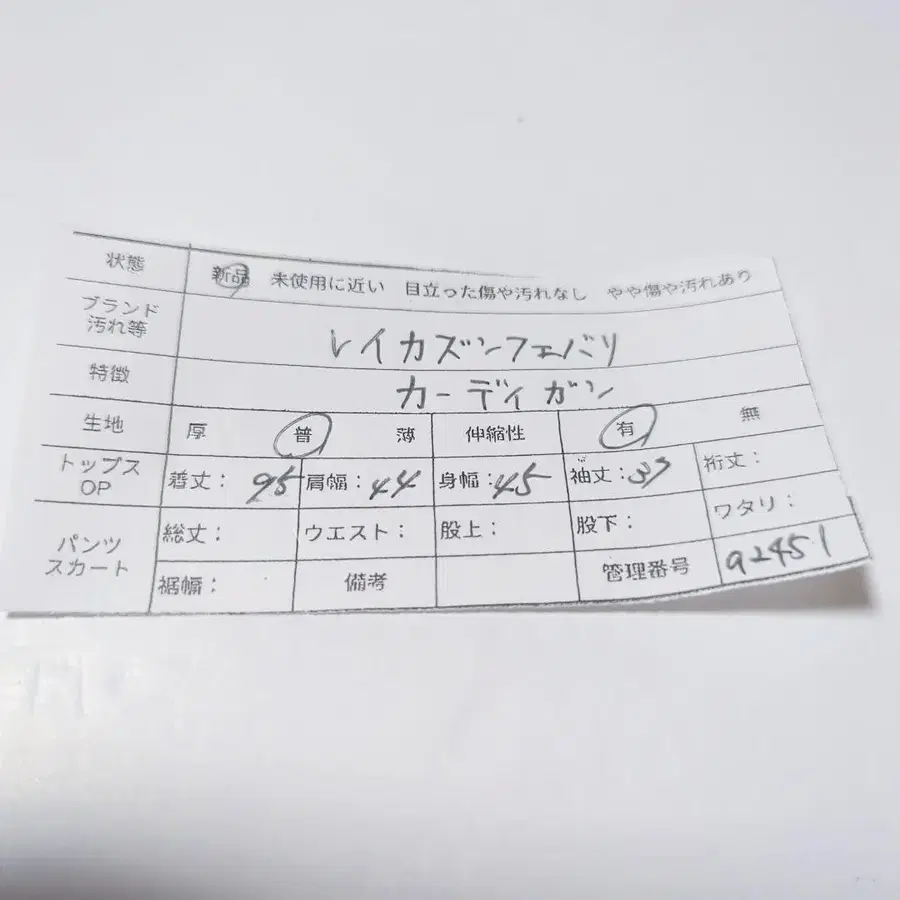 状態 新品 未使用に近い 目立った傷や汚れなし やや傷や汚れあり
ブランド
汚れ等 レイカズンフェバリ
特徴 カーディガン
生地 厚 普 薄 伸縮性 有 無
トップス
OP 着丈： 95 肩幅：44 身幅：45 袖丈：37 裄丈：
パンツ
スカート 総丈： ウエスト： 股上： 股下： ワタリ：
裾幅： 備考 管理番号 a2451